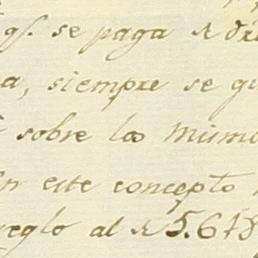 qs. se paga
a, siempre se
sobre los mismo
en este concepto
reglo al